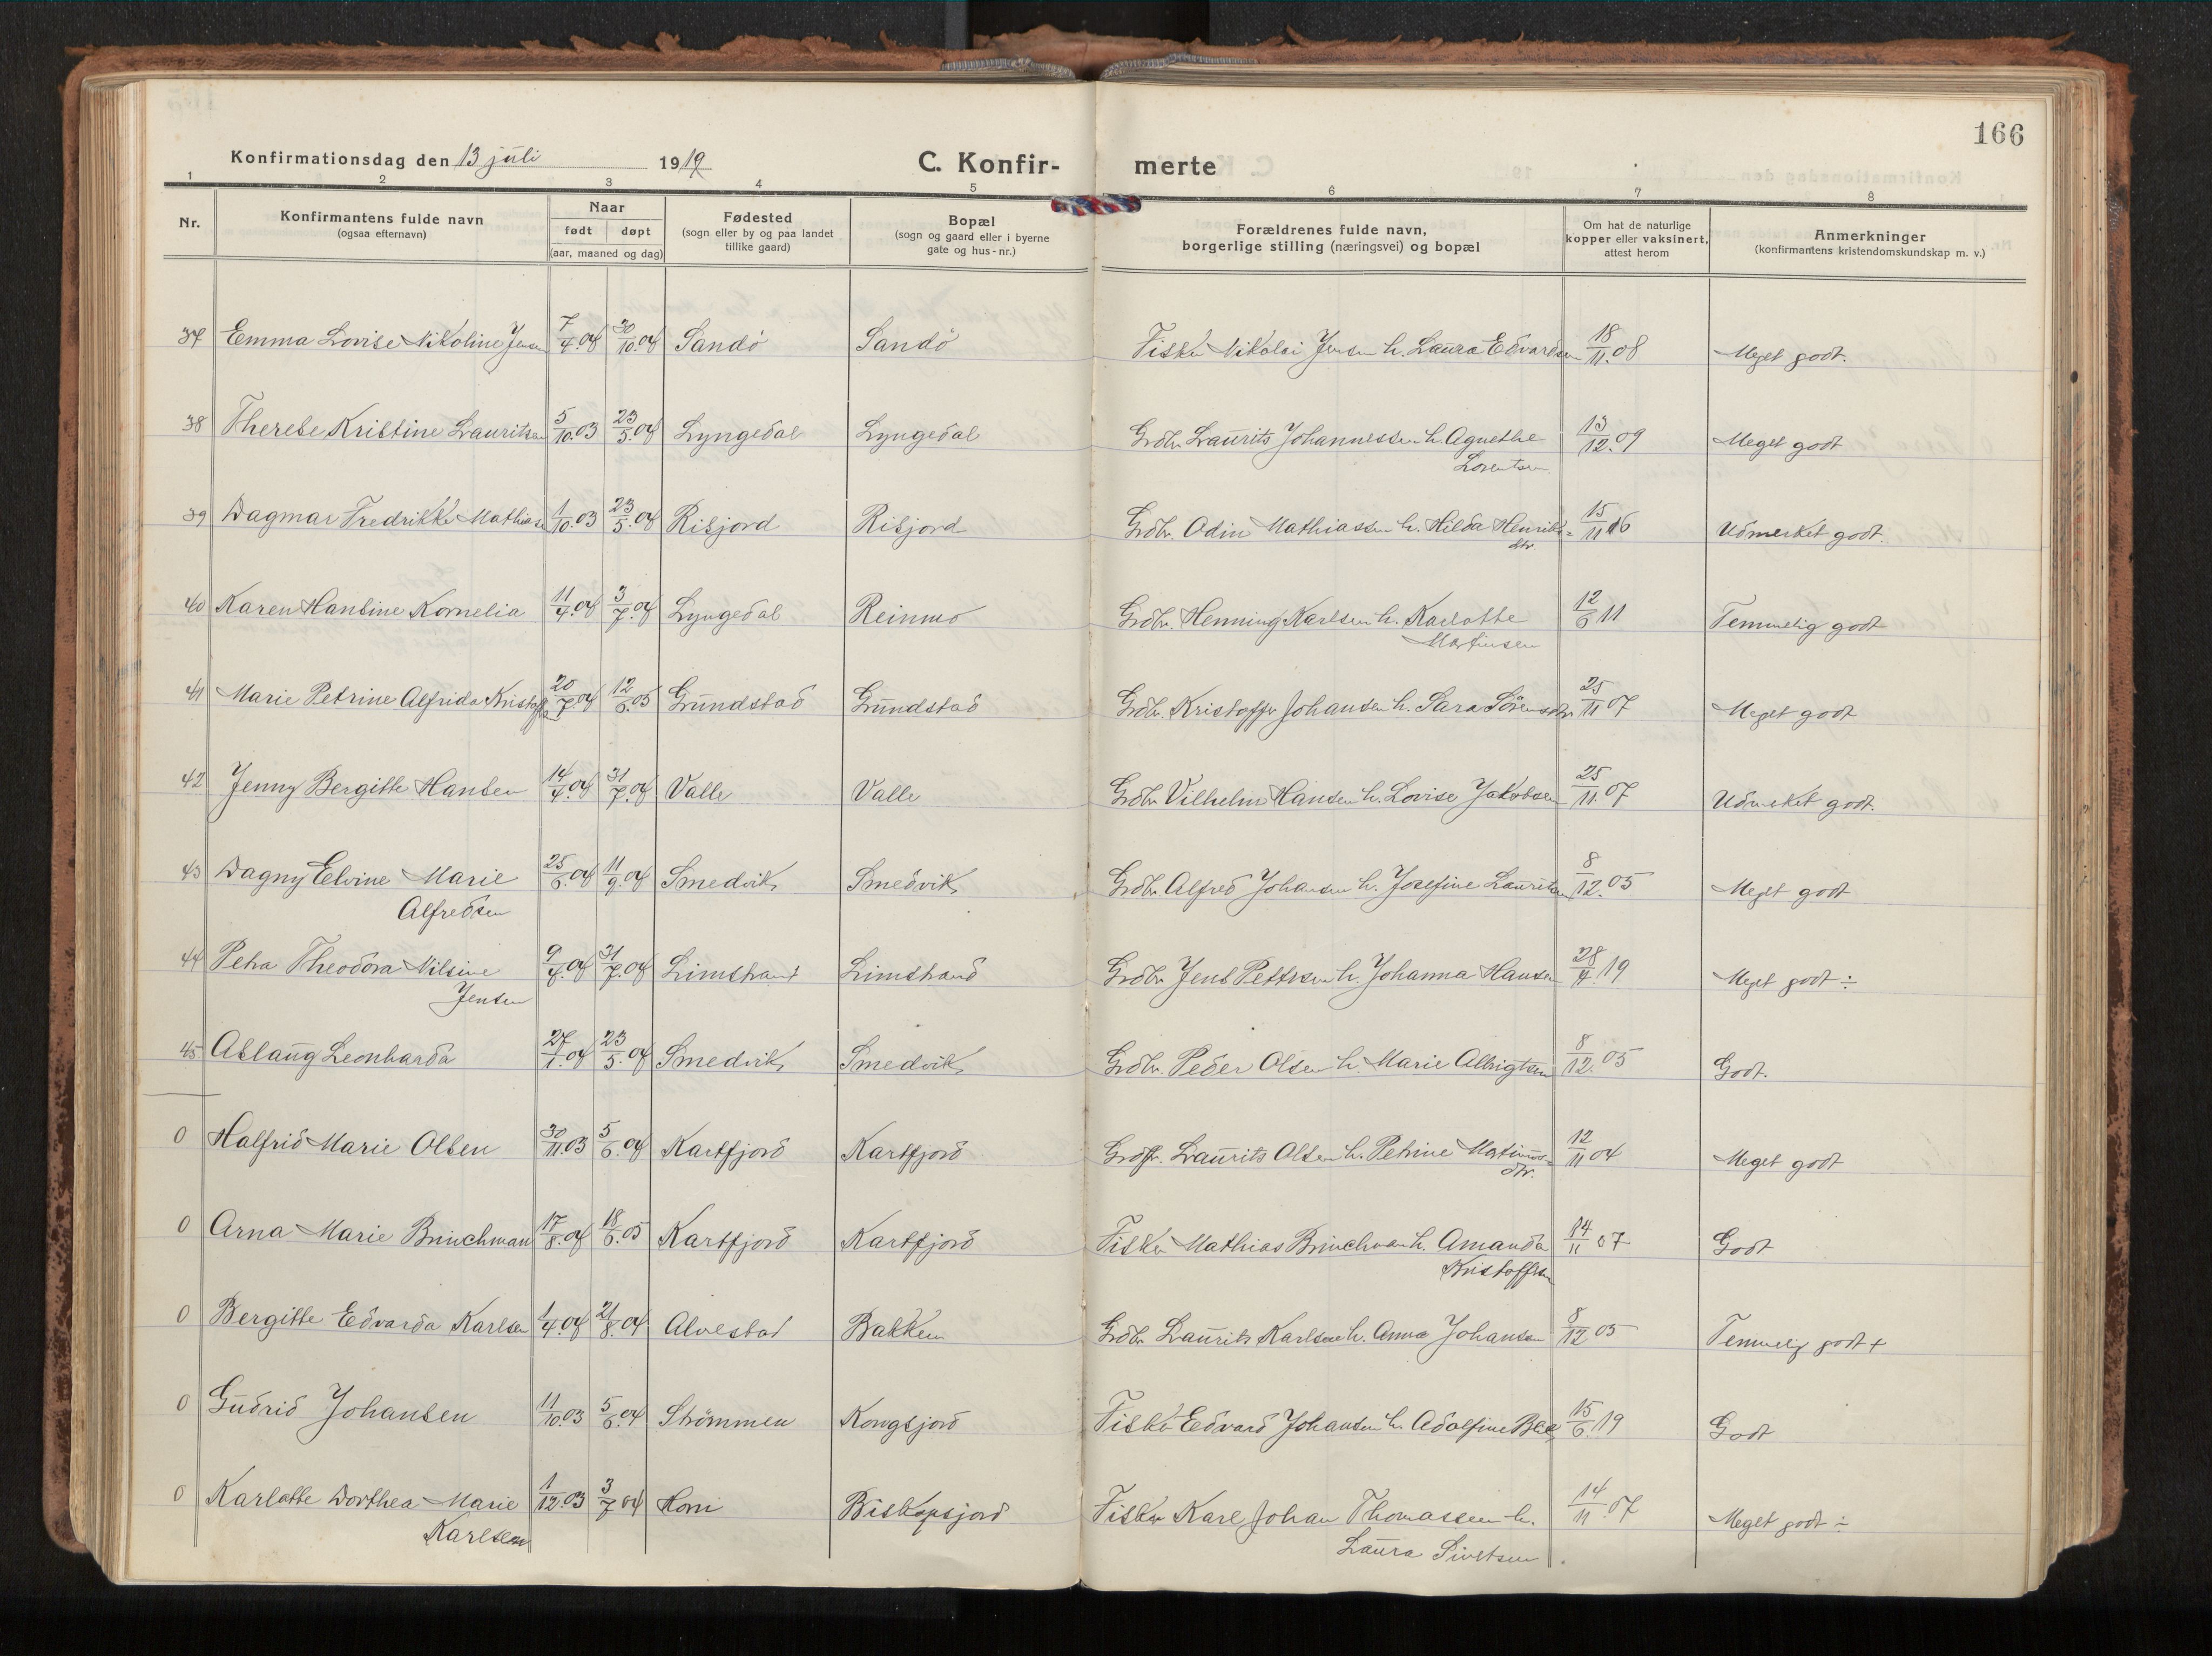 166
Konfirmationsdag den 13 juli 1919 C. Konfir- merte
1 2 3 4 5 6 7 8
Nr. Konfirmantens fulde navn (ogsaa efternavn) Naar født døpt (aar, maaned og dag) Fødested (sogn eller by og paa landet tillike gaard) Bopæl (sogn og gaard eller i byerne gate og hus-nr.) Forældrenes fulde navn, borgerlige stilling (næringsvei) og bopæl Om hat de naturlige kopper eller vaksinert, attest herom Anmerkninger (konfirmantens kristendomskundskap m. v.)
37 Emma Lovise Nikoline Jensen 7/4.04 30/10.04 Sandö Sandö Fisker Nikolai Jensen h. Laura Edvardsen 18/11.08 Meget godt.
38 Therese Kristine Lauritsen 5/10.03 23/5.04 Lyngedal Lyngedal Grdbr. Laurits Johannessen h. Agnethe 13/12.09 Meget godt
Lorentsen
39 Dagmar Fredrikke Mathiasen 1/10.03 23/5.04 Risjord Risjord Grdbr. Odin Mathiassen h. Hilda Henriks= 15/11 16 Udmerket godt.
dtr.
40 Karen Hansine Kornelia 11/4.04 3/7.04 Lyngedal Reinmo Grdbr. Henning Karlsen h. Karlotte 12/6 11 Temmelig godt
Martinsen
41 Marie Petrine Alfrida Kristoffs 20/7.04 12/6.05 Grundstad Grundstad Grdbr. Kristoffer Johansen h. Sara Sörensdtr 25/11 07 Meget godt
42 Jenny Bergitte Hansen 14/4.04 31/7.04 Valle Valle Grdbr Vilhelm Hansen h. Lovise Jakobsen 25/11.07 Udmerket godt.
43 Dagny Elvine Marie 25/6.04 11/9.04 Smedvik Smedvik Grdbr Alfred Johansen h. Josefine Lauritsen 8/12.05 Meget godt
Alfredsen
44 Petra Theodora Nilsine 9/4.04 31/7.04 Limstrand Limstrand Grdbr Jens Pettersen h. Johanna Hansen 28/4.19 Meget godt ÷
Jensen
45 Aslaug Leonharda 27/1.04 23/5.04 Smedvik Smedvik Grdbr. Peder Olsen h. Marie Albrigtsen 8/12.05 Godt.
0 Halfrid Marie Olsen 30/11.03 5/6.04 Kartfjord Kartfjord Laurits Olsen h. Petrine Martinus= 12/11 04 Meget godt
dtr.
0 Arna Marie Brinchman 17/8.04 18/6.05 Kartfjord Kartfjord Fisker Mathias Brinchman h. Amanda 14/11 07 Godt
Kristoffersen
0 Bergitte Edvarda Karlsen 1/4.04 21/8.04 Alvestad Bakken Grdbr Laurits Karlsen h. Anna Johansen 8/12 05 Temmelig godt +
0 Gudrid Johansen 11/10.03 5/6.04 Strömmen Kongsjord Fisker Edvard Johansen h. Adolfine 15/6.19 Godt
0 Karlotte Dorthea Marie 1/12.03 3/7 04 Biskopsjord Fisker Karl Johan Thomassen h. 14/11.07 Meget godt ÷
Karlsen Laura Sivertsen